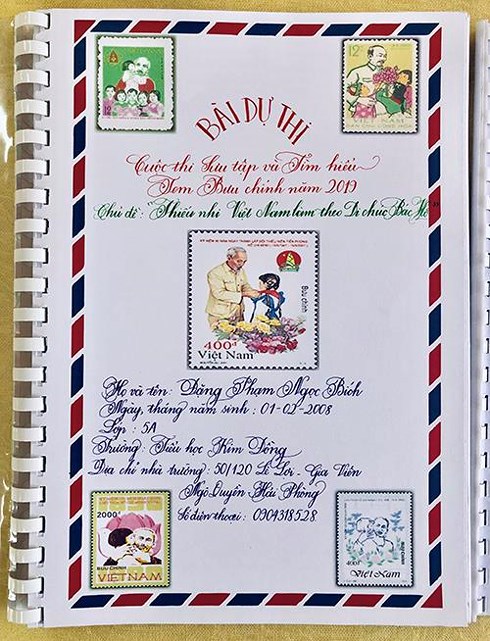 BÀI DỰ THI
Cuộc thi Sưu tập và Tìm hiểu
Tem Bưu chính năm 2019
Chủ đề: "Thiếu nhi Việt Nam làm theo Di chúc Bác Hồ"
12
VIỆT NAM
400đ
Việt Nam
Bưu chính
Họ và tên: Đặng Phạm Ngọc Bích
Ngày, tháng năm sinh: 01-02-2008
Lớp: 5A
Trường: Tiểu học Kim Đồng
Địa chỉ nhà trường: 50/120 Lê Lợi - Gia Viên
Ngô Quyền Hải Phòng
Số điện thoại: 0904318528
2000đ
BƯU CHÍNH
VIETNAM
400đ
Việt Nam